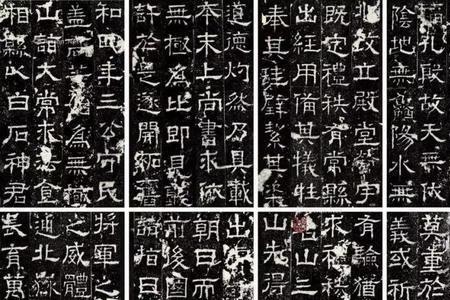 孔殷故天無
陰地無鬯陽水無
北改立殿堂營宇
既定禮秩有常縣
出經用備其犧牲
奉其珪璧絜其粢
道德灼然乃具載
本末上尚書求
無極為比即見聽
許於是遂開拓舊
和四年三公守民
蓋高等始為無極
山詣大常求法食
相縣以白石神君
莫重於
義或祈
有驗猶
求禮秩
名山三
山先得
出
朝日而
前後國
請指日
將軍之
之威體
通北嶽
長育萬